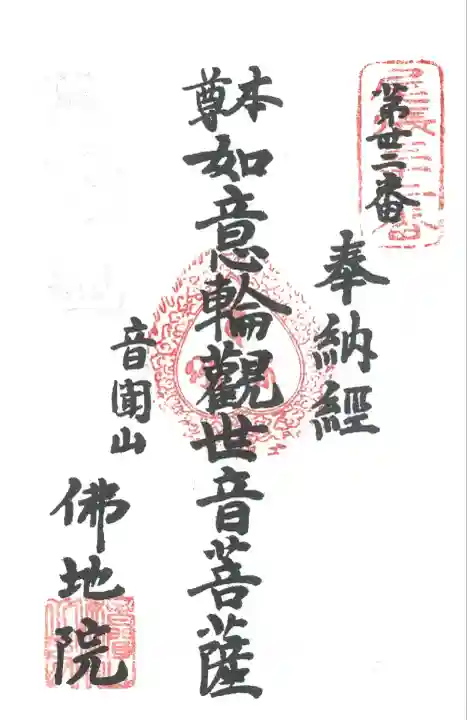 第卅二番
奉納經
本尊
如意輪觀世音菩薩
音聞山
佛地院